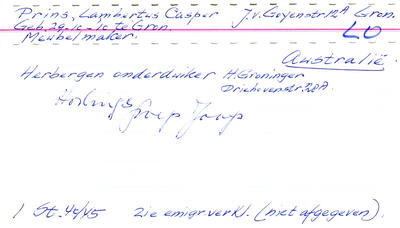 Prins, Lambertus Casper J.v.Goyenstr.12A Gron.
Geb. 29-10-10 te Gron.
Meubelmaker.
LO
Australië
Herbergen onderduiker H. Groninger
Driehovenstr. 28A.
Groep Joop
1 St. 44/45 zie emigr.verkl. (niet afgegeven).